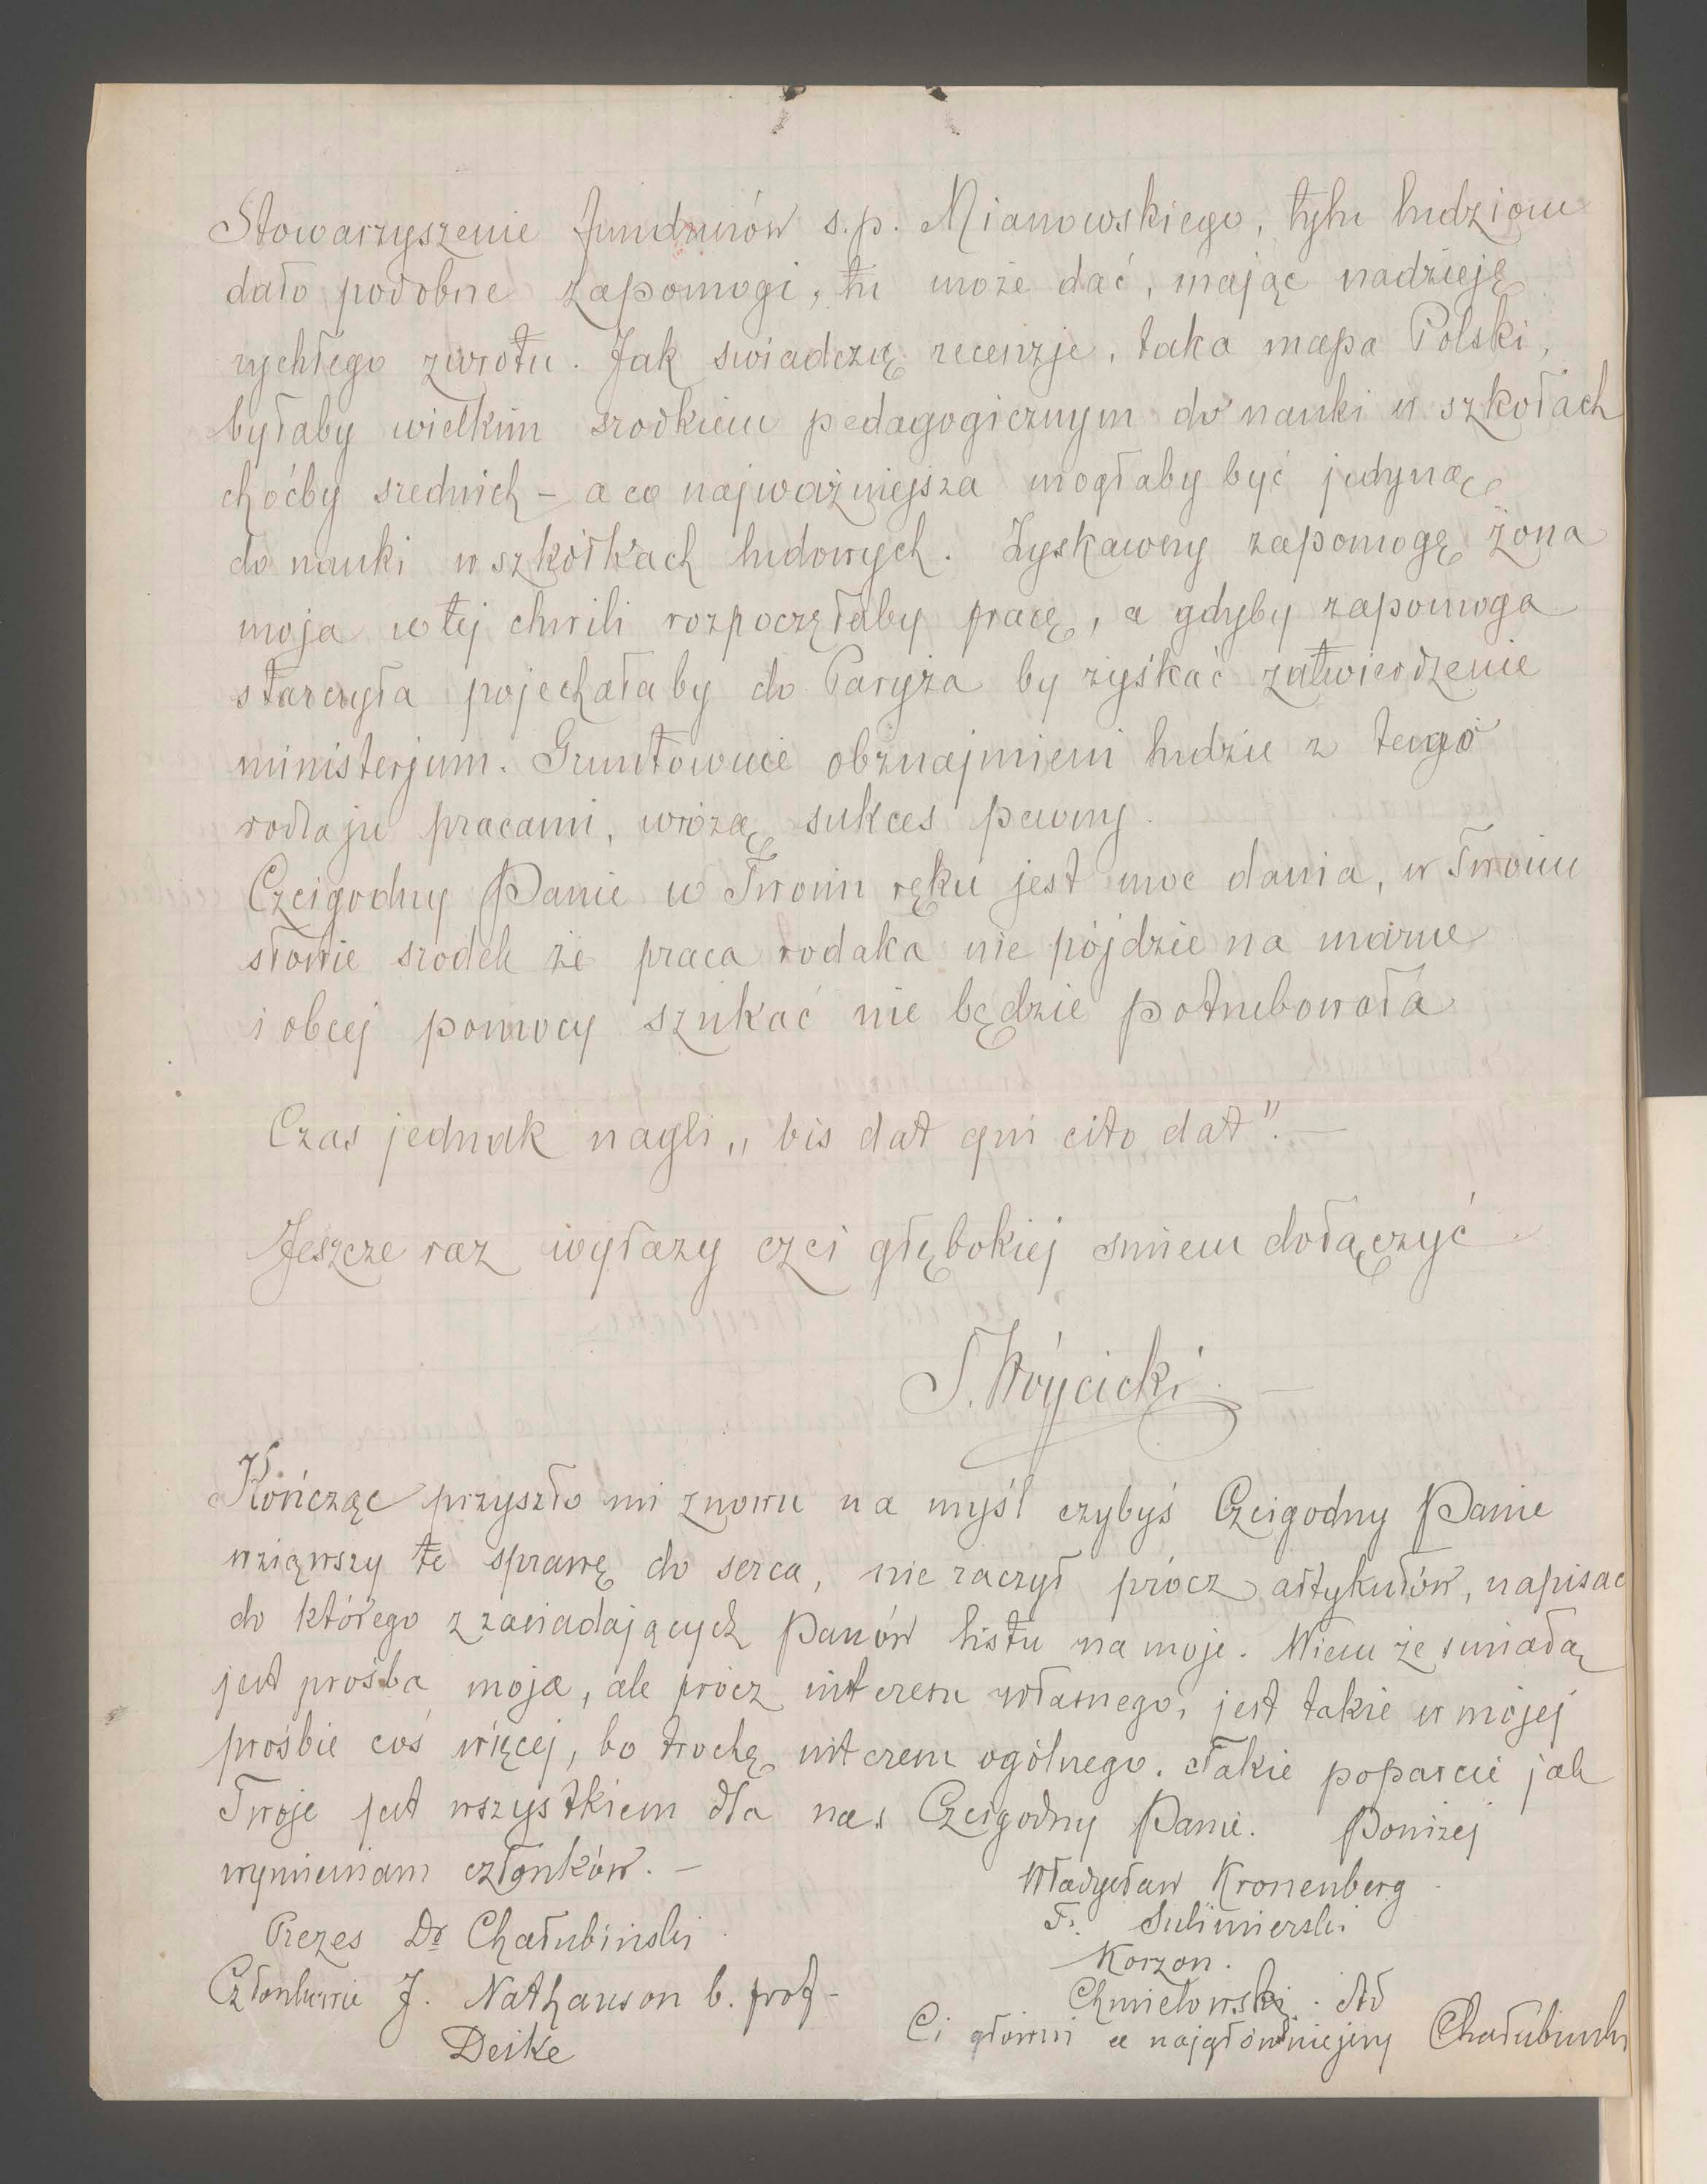 Stowarzyszenie funduszów s.p. Mianowskiego, tylu ludziom
dało podobne zapomogi, tu może dać, mając nadzieję
rychłego zwrotu. Jak swiadczą recenzje, taka mapa Polski,
byłaby wielkim srodkiem pedagogicznym do nauki w szkołach
choćby srednich – a co najważniejsza mogłaby być jedyną
do nauki w szkółkach ludowych. Zyskawszy zapomogę żona
moja w tej chwili rozpoczęłaby pracę, a gdyby zapomoga
starczyła pojechałaby do Paryża by zyskać zatwierdzenie
ministerjum. Gruntownie obznajmieni ludzie z tego
rodzaju pracami, wróżą sukces pewny.
Czcigodny Panie w Twoim ręku jest moc dania, w Twoim
słowie srodek że praca rodaka nie pójdzie na marne
i obcej pomocy szukać nie będzie potrzebowała
Czas jednak nagli „bis dat qui cito dat". –
Jeszcze raz wyrazy czci głębokiej smiem dołączyć
S. Wójcicki. –
Kończąc przyszło mi znowu na myśl czybyś Czcigodny Panie
wziąwszy te sprawę do serca, nie raczył prócz artykułów, napisac
do którego z zasiadających Panów listu na moje. Wiem że smiałą
jest prośba moja, ale prócz interesu własnego, jest takie w mojej
prośbie coś więcej, bo trochę interesu ogólnego. Takie poparcie jak
Twoje jest wszystkiem dla nas Czcigodny Panie. Poniżej
wymieniam członków. –
Prezes Dr Chałubiński
Członkowie J. Nathanson b. prof –
Deike
Władysław Kronenberg
F. Sulimierski
Korzon.
Chmielowski.
Ci głowni a najgłówniejszy Chałubiński